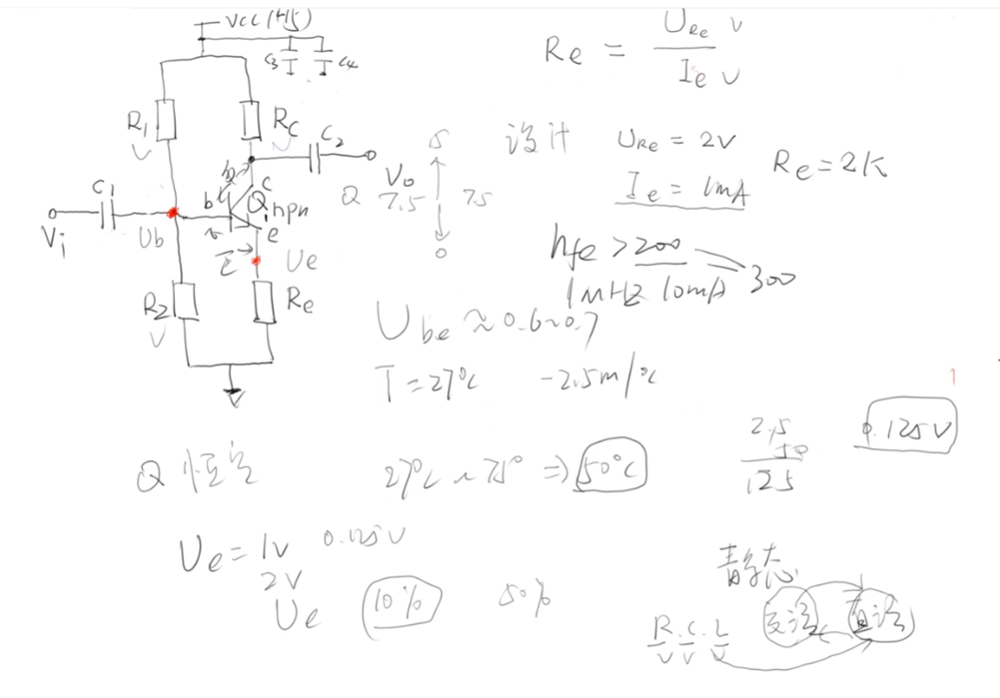 VCC (+15)
C3 C4
R1
Rc
C2
C1
b c
Q1 npn
e
Vi
Ub
Ue
R2
Re
Re = URe V / Ie V
设计 URe = 2V
Ie = 1mA
Re = 2K
Vo
Q 7.5 7.5
0
hfe > 200 300
1MHZ 10mA
Ube ≈ 0.6~0.7
T = 27℃ -2.5m/℃
2.5
50
125
0.125V
Q 恒定 27℃ ~ 75° ⇒ 50℃
Ue = 1V 0.125V
2V
Ue 10% 50%
静态
交流 直流
R.C.L
V V V
1